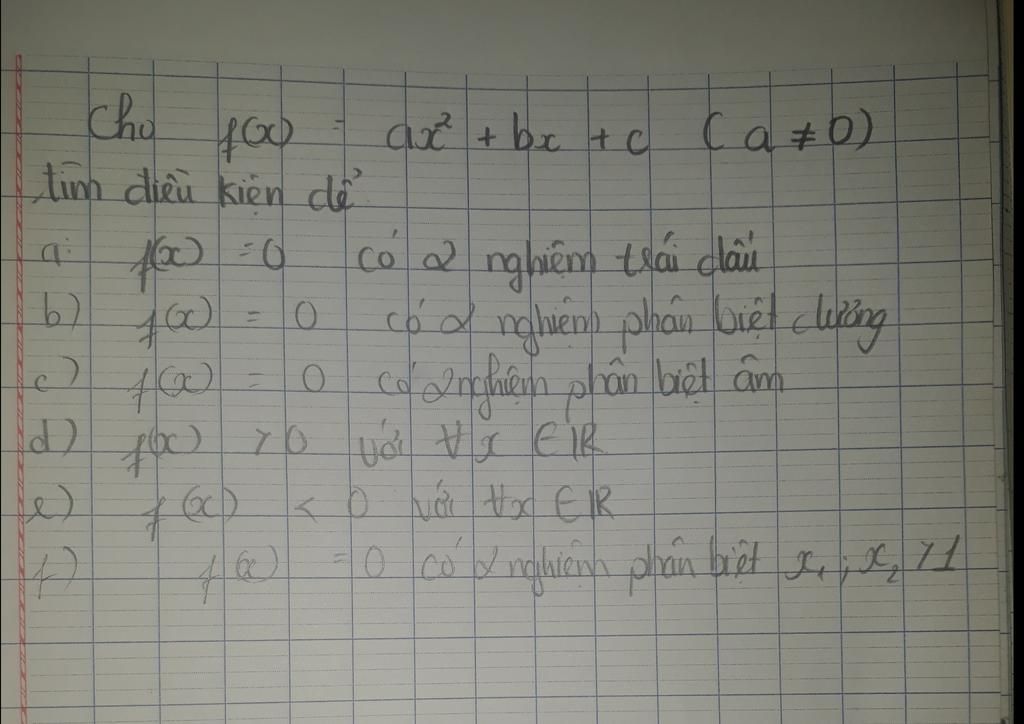 Cho f(x) = ax² + bx + c (a ≠ 0)
tìm điều kiện để
a: f(x) = 0 có 2 nghiệm trái dấu
b) f(x) = 0 có 2 nghiệm phân biệt dương
c) f(x) = 0 có 2 nghiệm phân biệt âm
d) f(x) > 0 với ∀x ∈ ℝ
e) f(x) < 0 với ∀x ∈ ℝ
f) f(x) = 0 có 2 nghiệm phân biệt x₁; x₂ > 1